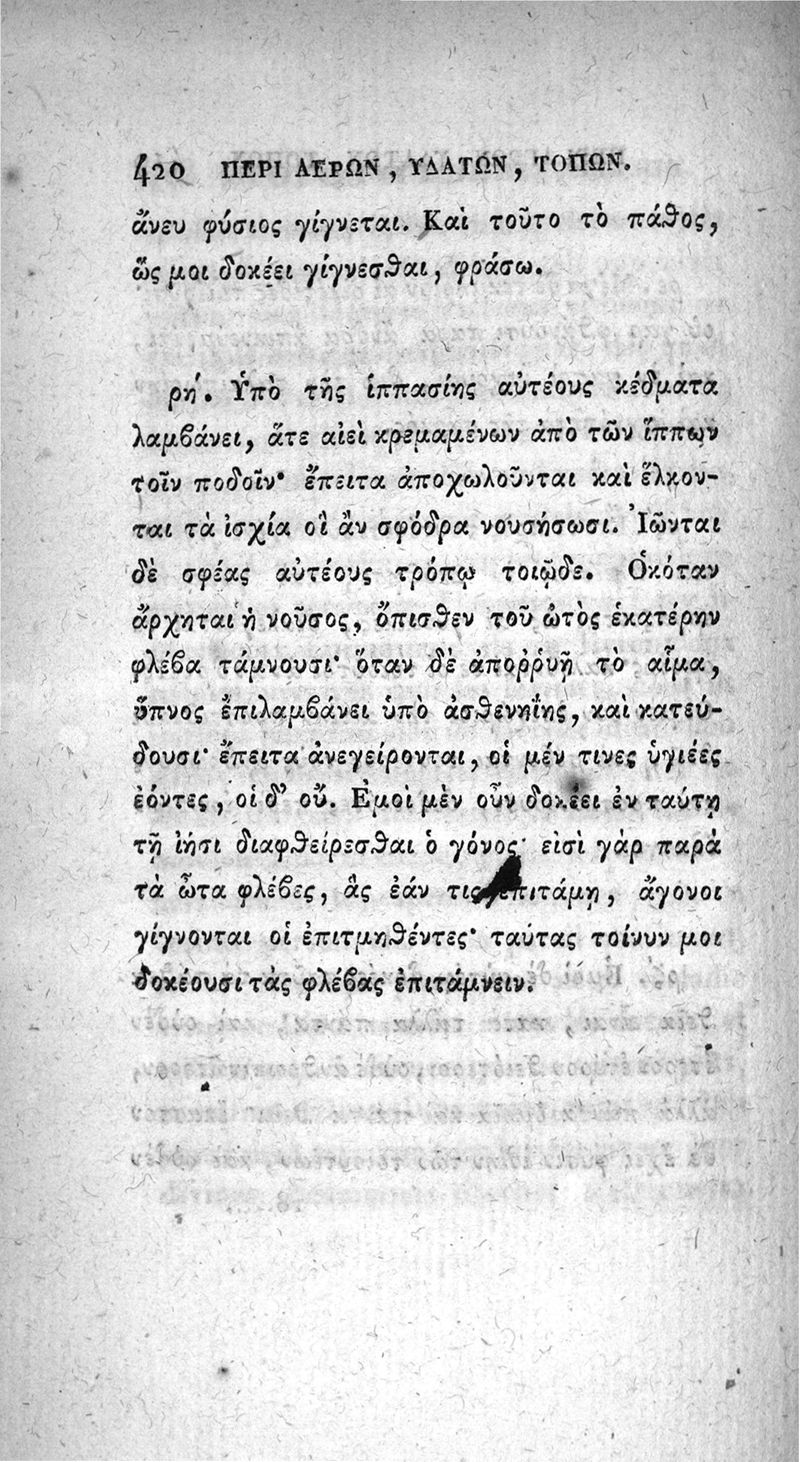 420 ΠΕΡΙ ΑΕΡΩΝ, ΥΔΑΤΩΝ, ΤΟΠΩΝ.
ἄνευ φύσιος γίγνεται. Καὶ τοῦτο τὸ πάθος,
ὥς μοι δοκέει γίγνεσθαι, φράσω.
ρή. Ὑπὸ τῆς ἱππασίης αὐτέους κέδματα
λαμβάνει, ἅτε αἰεὶ κρεμαμένων ἀπὸ τῶν ἵππων
τοῖν ποδοῖν· ἔπειτα ἀποχωλοῦνται καὶ ἕλκον-
ται τὰ ἰσχία οἳ ἂν σφόδρα νουσήσωσι. Ἰῶνται
δὲ σφέας αὐτέους τρόπῳ τοιῷδε. Ὁκόταν
ἄρχηται ἡ νοῦσος, ὄπισθεν τοῦ ὠτὸς ἑκατέρην
φλέβα τάμνουσι· ὅταν δὲ ἀποῤῥυῇ τὸ αἷμα,
ὕπνος ἐπιλαμβάνει ὑπὸ ἀσθενηΐης, καὶ κατεύ-
δουσι· ἔπειτα ἀνεγείρονται, οἱ μέν τινες ὑγιέες
ἐόντες, οἱ δ' οὔ. Ἐμοὶ μὲν οὖν δοκέει ἐν ταύτῃ
τῇ ἰήσι διαφθείρεσθαι ὁ γόνος· εἰσὶ γὰρ παρὰ
τὰ ὦτα φλέβες, ἃς ἐάν τις ἐπιτάμῃ, ἄγονοι
γίγνονται οἱ ἐπιτμηθέντες· ταύτας τοίνυν μοι
δοκέουσι τὰς φλέβας ἐπιτάμνειν.